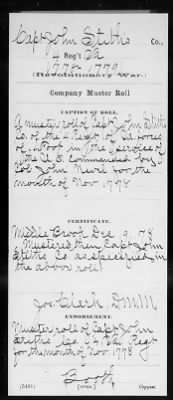 Capt John Stiths Co.,
4 Reg't Va
1778-1779
(Revolutionary War.)
Company Muster Roll
CAPTION OF ROLL.
A muster roll of Capt John Stiths
Co. of the 4 Regt of Va forces
of Foot in the service of
the U.S. commanded by
Col John Nevil for the
month of Nov 1778
CERTIFICATE.
Middle Brook Dec 19, 78
Mustered then Capt John
Stiths Co. as specified in
the above roll
Jos. Clark, D.M.M
ENDORSEMENT.
Muster roll of Capt John
Stiths Co. 4 Va Regt
for the month of Nov 1778
Booth
(545) Copyist.